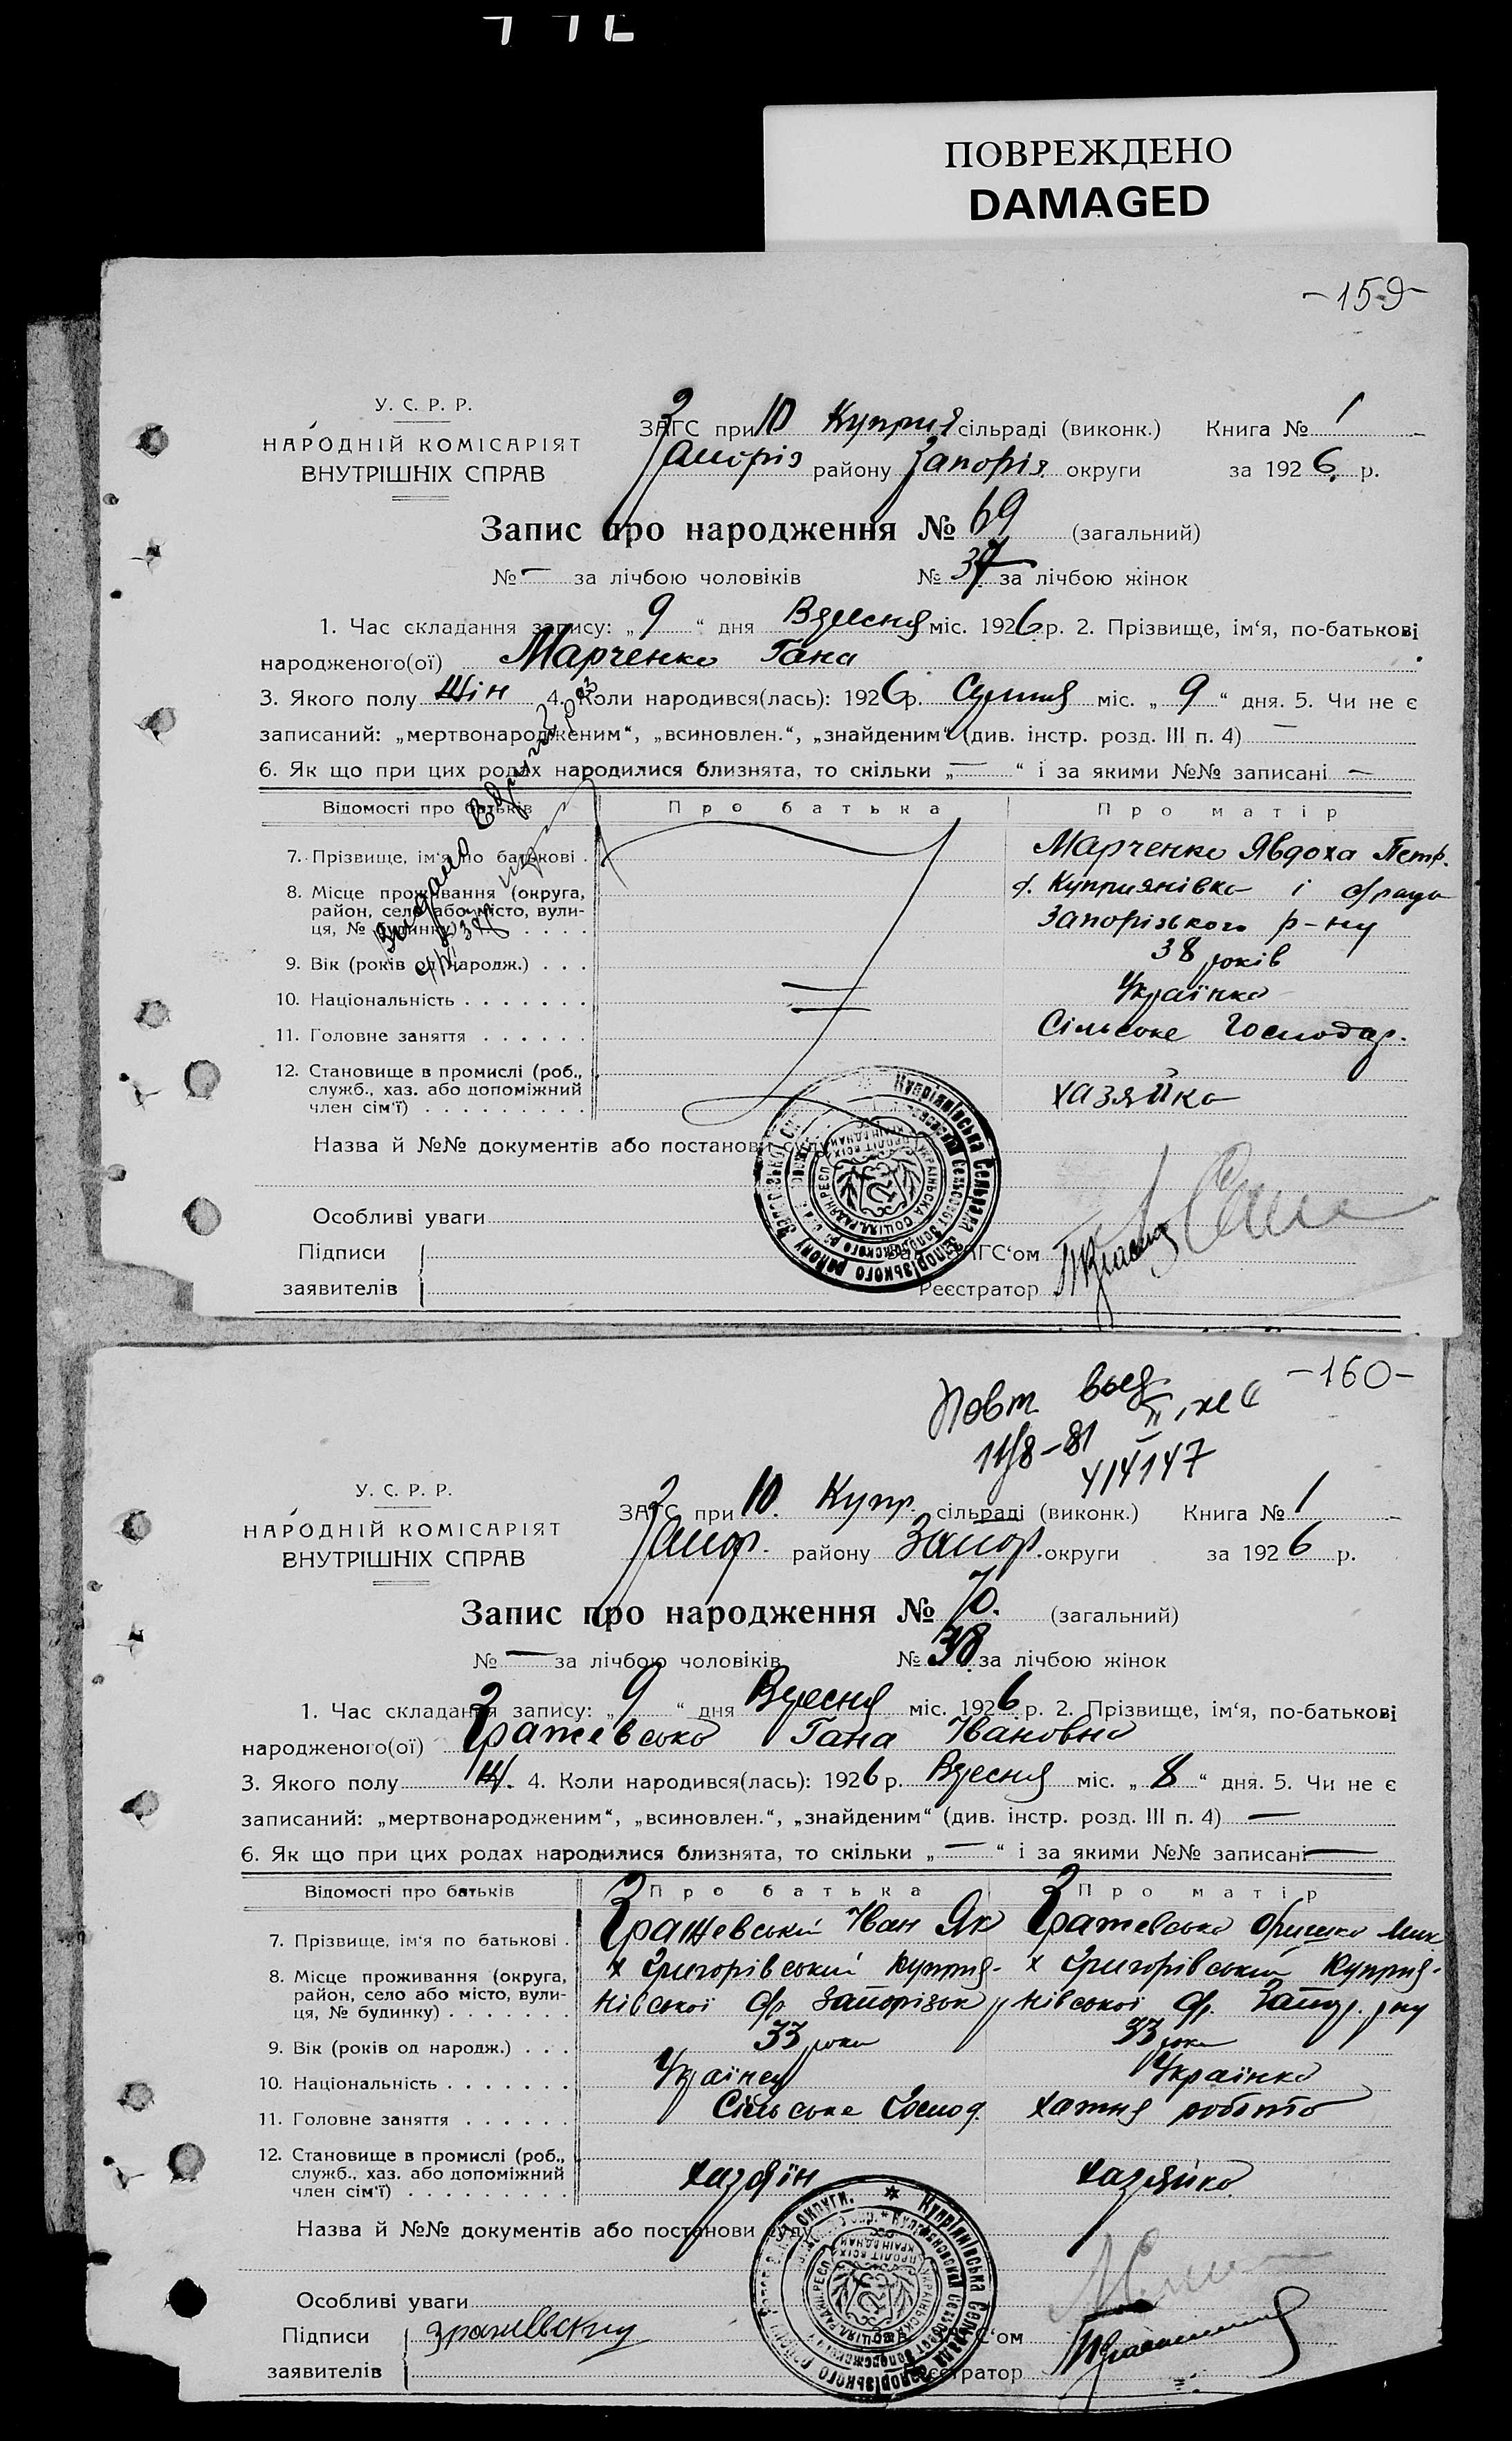 ПОВРЕЖДЕНО
DAMAGED
-159-
У. С. Р. Р.
НАРОДНІЙ КОМІСАРІЯТ
ВНУТРІШНІХ СПРАВ
ЗАГС при 10 Куприя сільраді (виконк.) Книга № 1
Запоріз району Запоріз округи за 1926 р.
Запис про народження № 69 (загальний)
№ — за лічбою чоловіків № 37 за лічбою жінок
1. Час складання запису: „9“ дня Вересня міс. 1926 р. 2. Прізвище, ім‘я, по-батькові
народженого(ої) Марченко Гана
3. Якого полу Жін 4. Коли народився(лась): 1926 р. Серпня міс. „9“ дня. 5. Чи не є
записаний: „мертвонародженим“, „всиновлен.“, „знайденим“ (див. інстр. розд. III п. 4) —
6. Як що при цих родах народилися близнята, то скільки „—“ і за якими №№ записані —
Відомості про батьків Про батька Про матір
7. Прізвище, ім‘я по батькові . Марченко Явдоха Петр.
8. Місце проживання (округа, с. Куприянівка і
район, село або місто, вули- Запорізького р-ну
ця, № будинку)
9. Вік (років од народж.) . . . 38 років
10. Національність . . . . . . . Українка
11. Головне заняття . . . . . . Сільське Господар.
12. Становище в промислі (роб.,
служб., хаз. або допоміжний хазяйка
член сім‘ї) . . . . . . . . .
Назва й №№ документів або постанови суду
Особливі уваги
Підписи ЗАГС‘ом
заявителів Реєстратор
Купріянівська Сельрада Запорізького району
-160-
Повт. выд.
11/8-81
414147
У. С. Р. Р.
НАРОДНІЙ КОМІСАРІЯТ
ВНУТРІШНІХ СПРАВ
ЗАГС при 10. Купр. сільраді (виконк.) Книга № 1
Запор. району Запор. округи за 1926 р.
Запис про народження № 70. (загальний)
№ — за лічбою чоловіків № 38 за лічбою жінок
1. Час складання запису: „9“ дня Вересня міс. 1926 р. 2. Прізвище, ім‘я, по-батькові
народженого(ої) Гражевська Гана Івановна
3. Якого полу Ж. 4. Коли народився(лась): 1926 р. Вересня міс. „8“ дня. 5. Чи не є
записаний: „мертвонародженим“, „всиновлен.“, „знайденим“ (див. інстр. розд. III п. 4) —
6. Як що при цих родах народилися близнята, то скільки „—“ і за якими №№ записані —
Відомості про батьків Про батька Про матір
7. Прізвище, ім‘я по батькові . Гражевський Іван Як Гражевська Оришка Мих.
8. Місце проживання (округа, х Григорівський Куприя- х Григорівський Куприя-
район, село або місто, вули- нівської с/р Запорізьк нівської с/р. Запор. р-ну
ця, № будинку) . . . . . . .
9. Вік (років од народж.) . . . 33 роки 33 роки
10. Національність . . . . . . . Українец Українка
11. Головне заняття . . . . . . Сільське Господ. хатня робота
12. Становище в промислі (роб.,
служб., хаз. або допоміжний хазяїн хазяйка
член сім‘ї) . . . . . . . . .
Назва й №№ документів або постанови суду
Особливі уваги
Підписи
заявителів Реєстратор
Купріянівська Сельрада Запорізького району